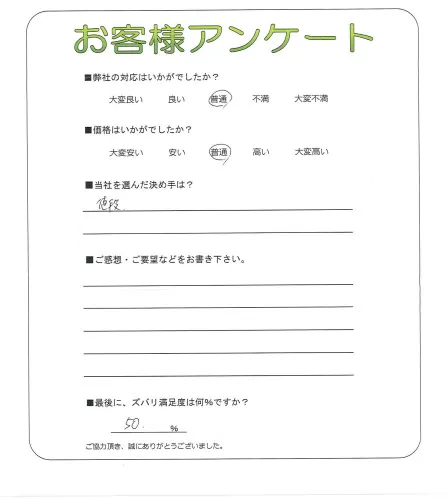 お客様アンケート
■弊社の対応はいかがでしたか？
大変良い 良い 普通 不満 大変不満
■価格はいかがでしたか？
大変安い 安い 普通 高い 大変高い
■当社を選んだ決め手は？
値段
■ご感想・ご要望などをお書き下さい。
■最後に、ズバリ満足度は何％ですか？
50. ％
ご協力頂き、誠にありがとうございました。